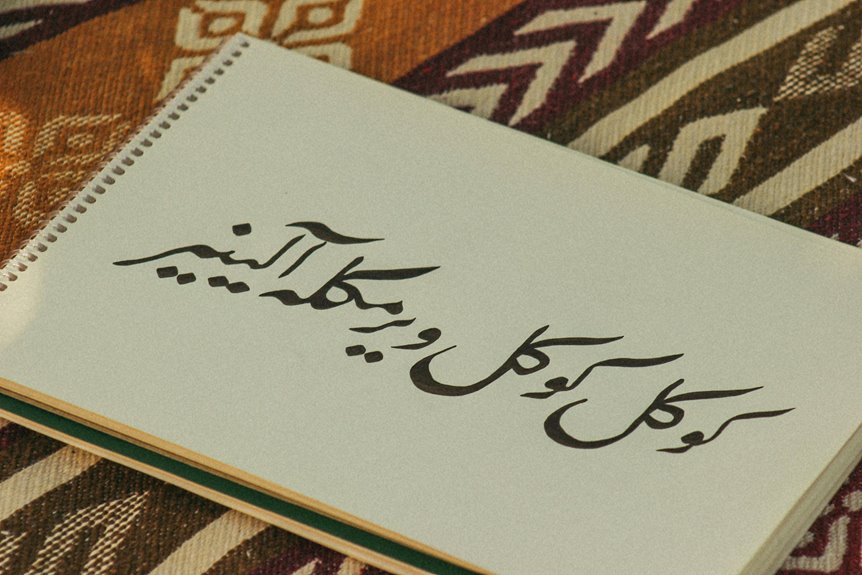 كوكل كوكل ويرمكله آلينير